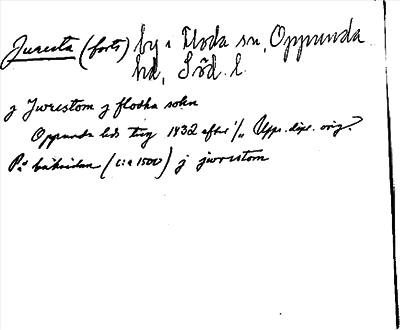 Juresta (forts) by i Floda sn, Oppunda
hd, Söd. l.
j Jwrestom j flodha sokn
Oppunda hds ting 1432 efter 1/11 Upps. dipl. orig.
På baksidan (c:a 1500) j jwrestom